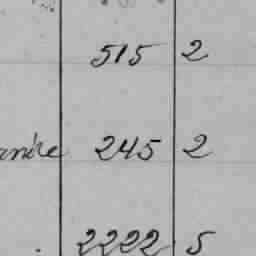 515 2
245 2
2222 5